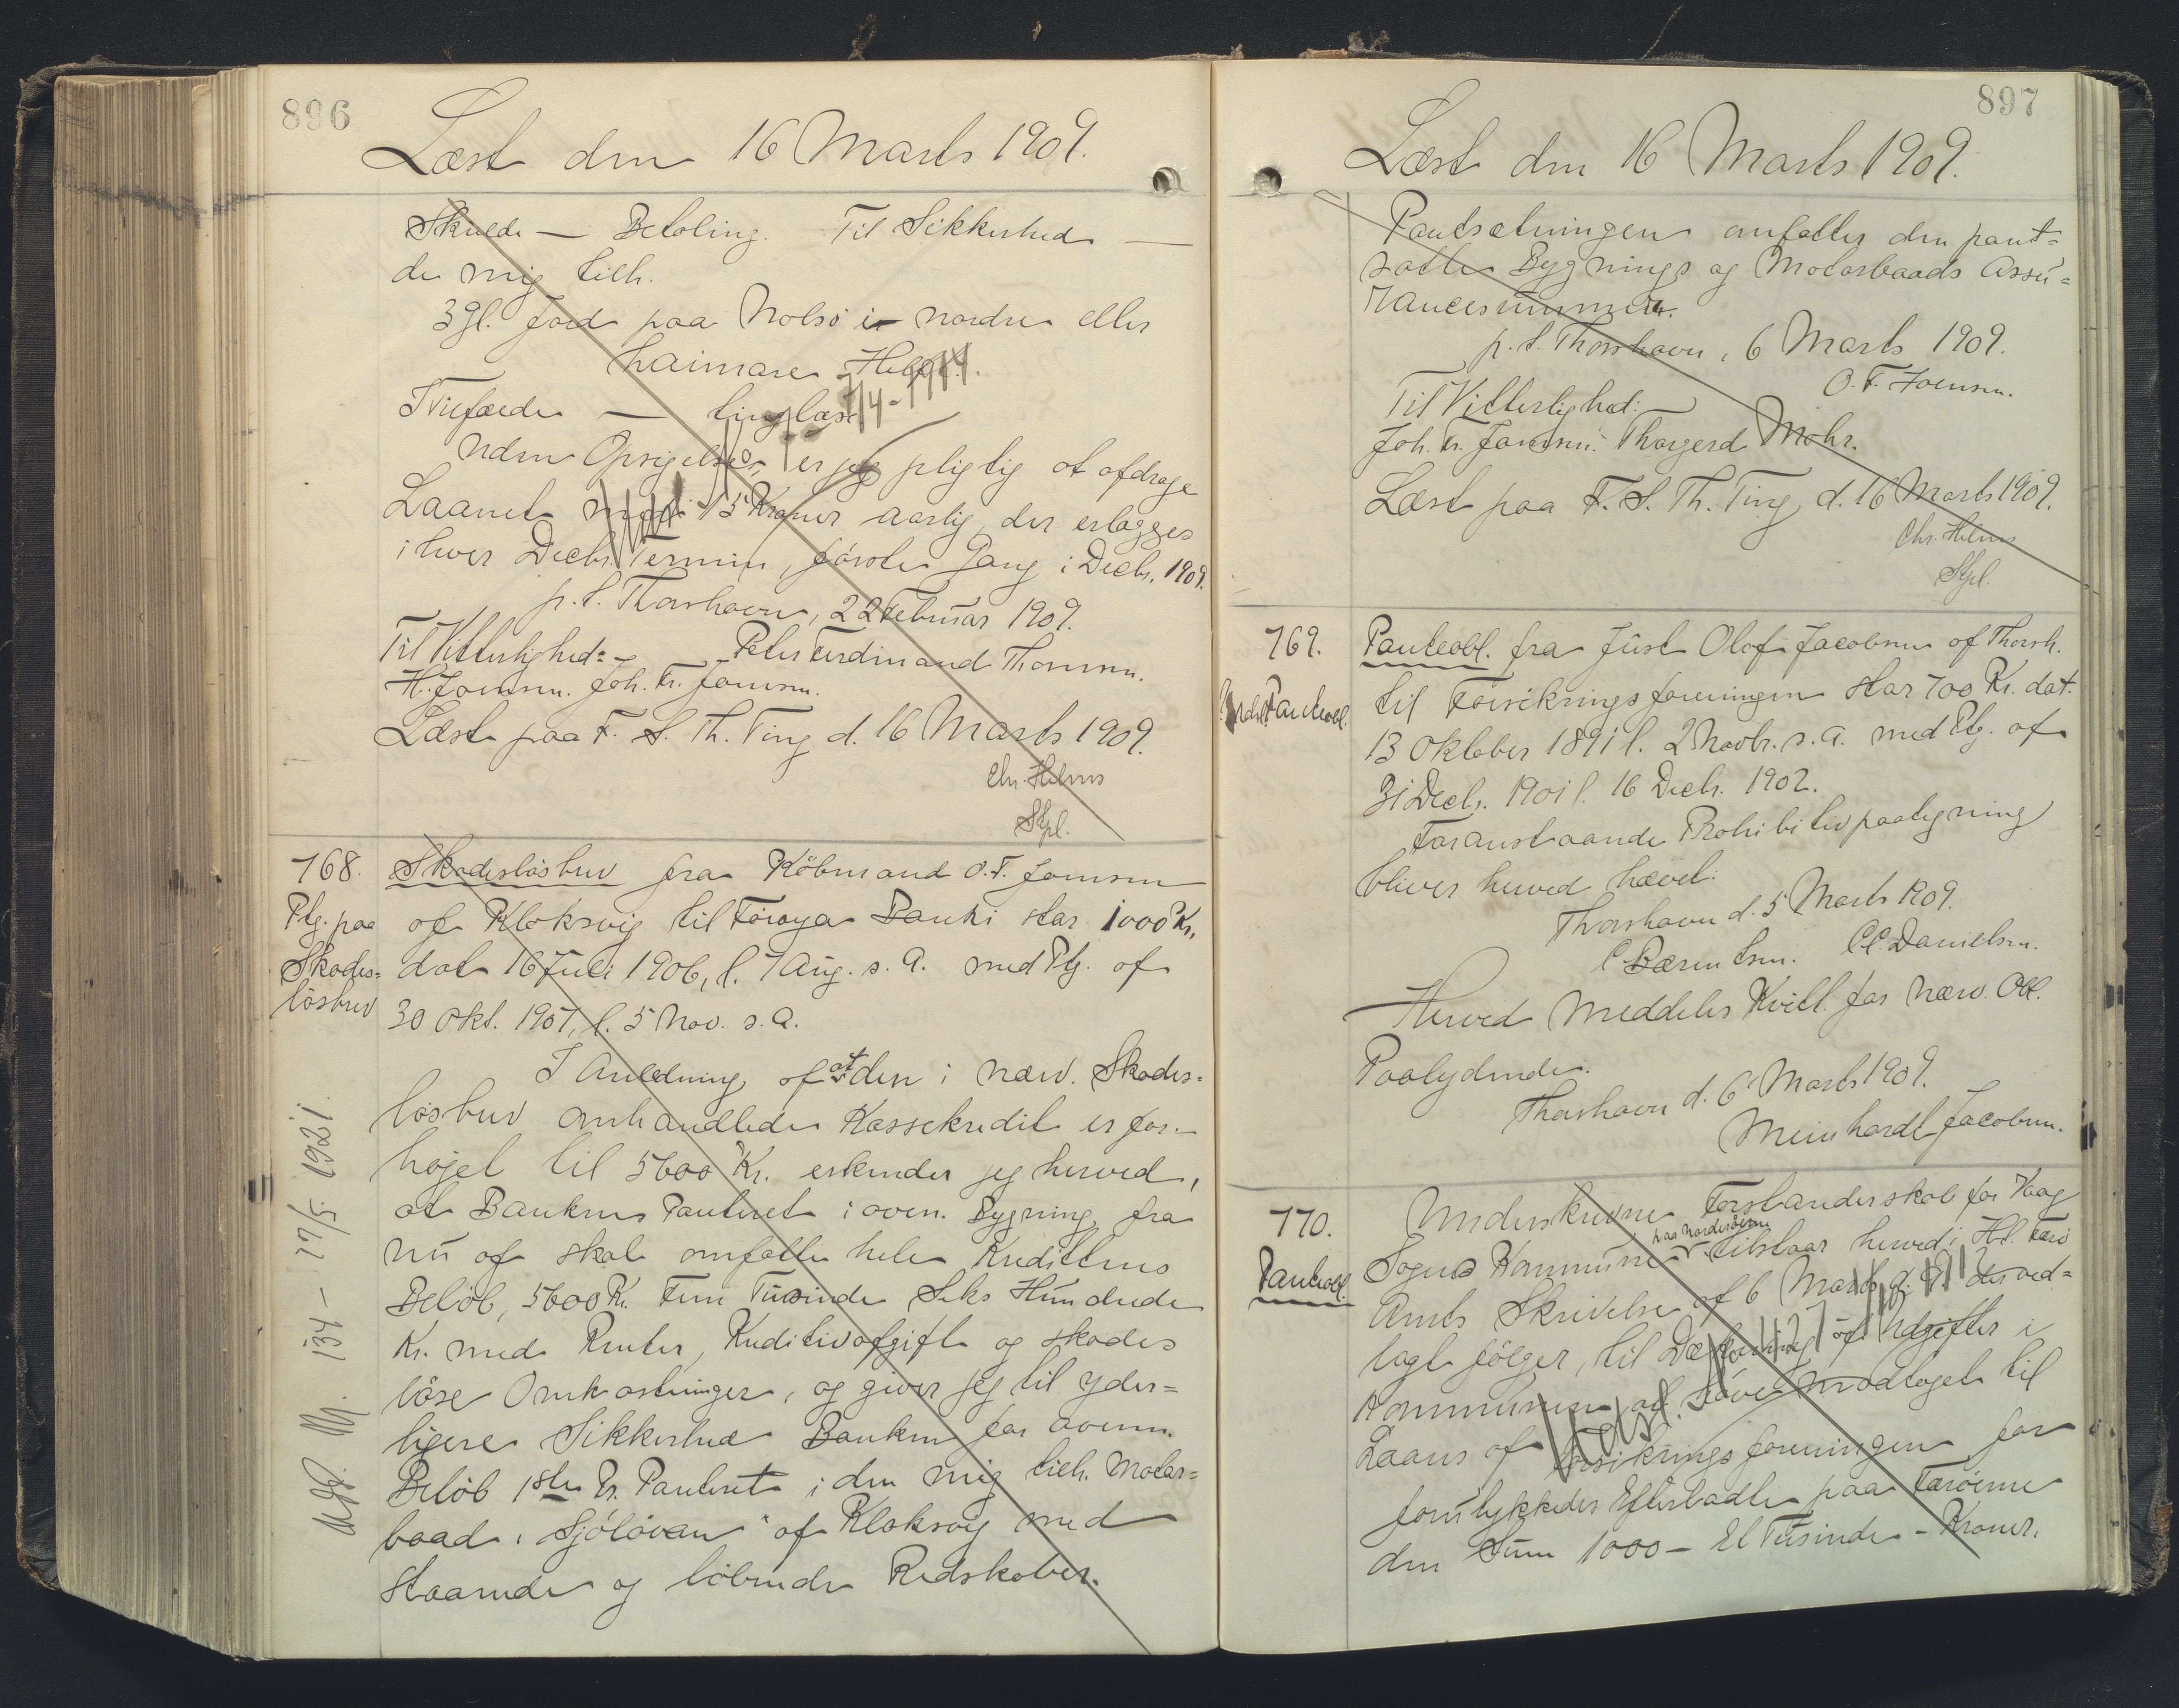 896
Læst den 16 Marts 1909.
Skulde — Betaling. Til Sikkerhed —
de mig tilh.
3 gl. Jord paa Nolsø i nordre eller
haimare Helvt.
I Tilfælde — tinglæst
Uden Opsigelse, er jeg pligtig at afdrage
Laanet med 15 Kroner aarlig, der erlægges
i hver Decbr. Termin, første Gang i Decbr. 1909.
p. t. Thorshavn, 22 Februar 1909.
Til Vitterlighed: Peter Ferdinand Thomsen.
H. Joensen. Joh. Fr. Joensen.
Læst paa F. S. Th. Ting d. 16 Marts 1909.
Chr. Helms
Stpl.
768. Skadesløsbrev fra Købmand O. F. Joensen
Ptg. paa af Klaksvig til Føroya Banki stor 1000 Kr.
Skades= dat 16 Juli 1906, l. 7 Aug. s. A. med Ptg. af
løsbrev 30 Okt. 1907, l. 5 Nov. s. A.
I Anledning af at den i nærv. Skades=
løsbrev omhandlede Kassekredit er for-
højet til 5600 Kr. erkender jeg herved,
at Bankens Panteret i oven. Bygning fra
nu af skal omfatte hele Kredittens
Beløb, 5600 Kr. Fem Tusinde Seks Hundrede
Kr. med Renter, Kreditivafgift og skades
løse Omkostninger, og giver jeg til yder=
ligere Sikkerhed Banken for ovenn.
Beløb 1ste Pr. Panteret i den mig tilh. Motor=
baad "Sjóløvan" af Klaksvig med
staaende og løbende Redskaber.
134 - 17/5 1921.
897
Læst den 16 Marts 1909.
Pantsætningen omfatter den pant=
satte Bygnings og Motorbaads Assu=
rancesummer.
p. t. Thorshavn, 6 Marts 1909.
O. F. Joensen.
Til Vitterlighed:
Joh. Fr. Joensen. Thorgerd Mohr.
Læst paa F. S. Th. Ting d. 16 Marts 1909.
Chr. Helms
Stpl.
769. Panteobl. fra Just Olof Jacobsen af Thorsh.
Panteobl. til Forsikringsforeningen stor 700 Kr. dat.
13 Oktober 1891 l. 2 Novbr. s. A. med Ptg. af
31 Decbr. 1901 l. 16 Decbr. 1902.
Foranstaaende Prohibitivpaategning
bliver herved hævet.
Thorshavn d. 5 Marts 1909.
C. Bærentsen. C. C. Danielsen.
Herved meddeles Kvitt. for nærv. Obl.
Paalydende.
Thorshavn d. 6 Marts 1909.
Meinhardt Jacobsen.
770. Underskrevne Forstanderskab for Vaag
paa Norderøerne
Panteobl. Sogns Kommune tilstaar herved i Hd. Færø
Amts Skrivelse af 6 Marts d. A. der ved=
lagt følger, til Dækning af Udgifter i
Kommunen at have modtaget til
Laans af Forsikringsforeningen for
forulykkedes Efterladte paa Færøerne
den Sum 1000 — Et Tusinde — Kroner.